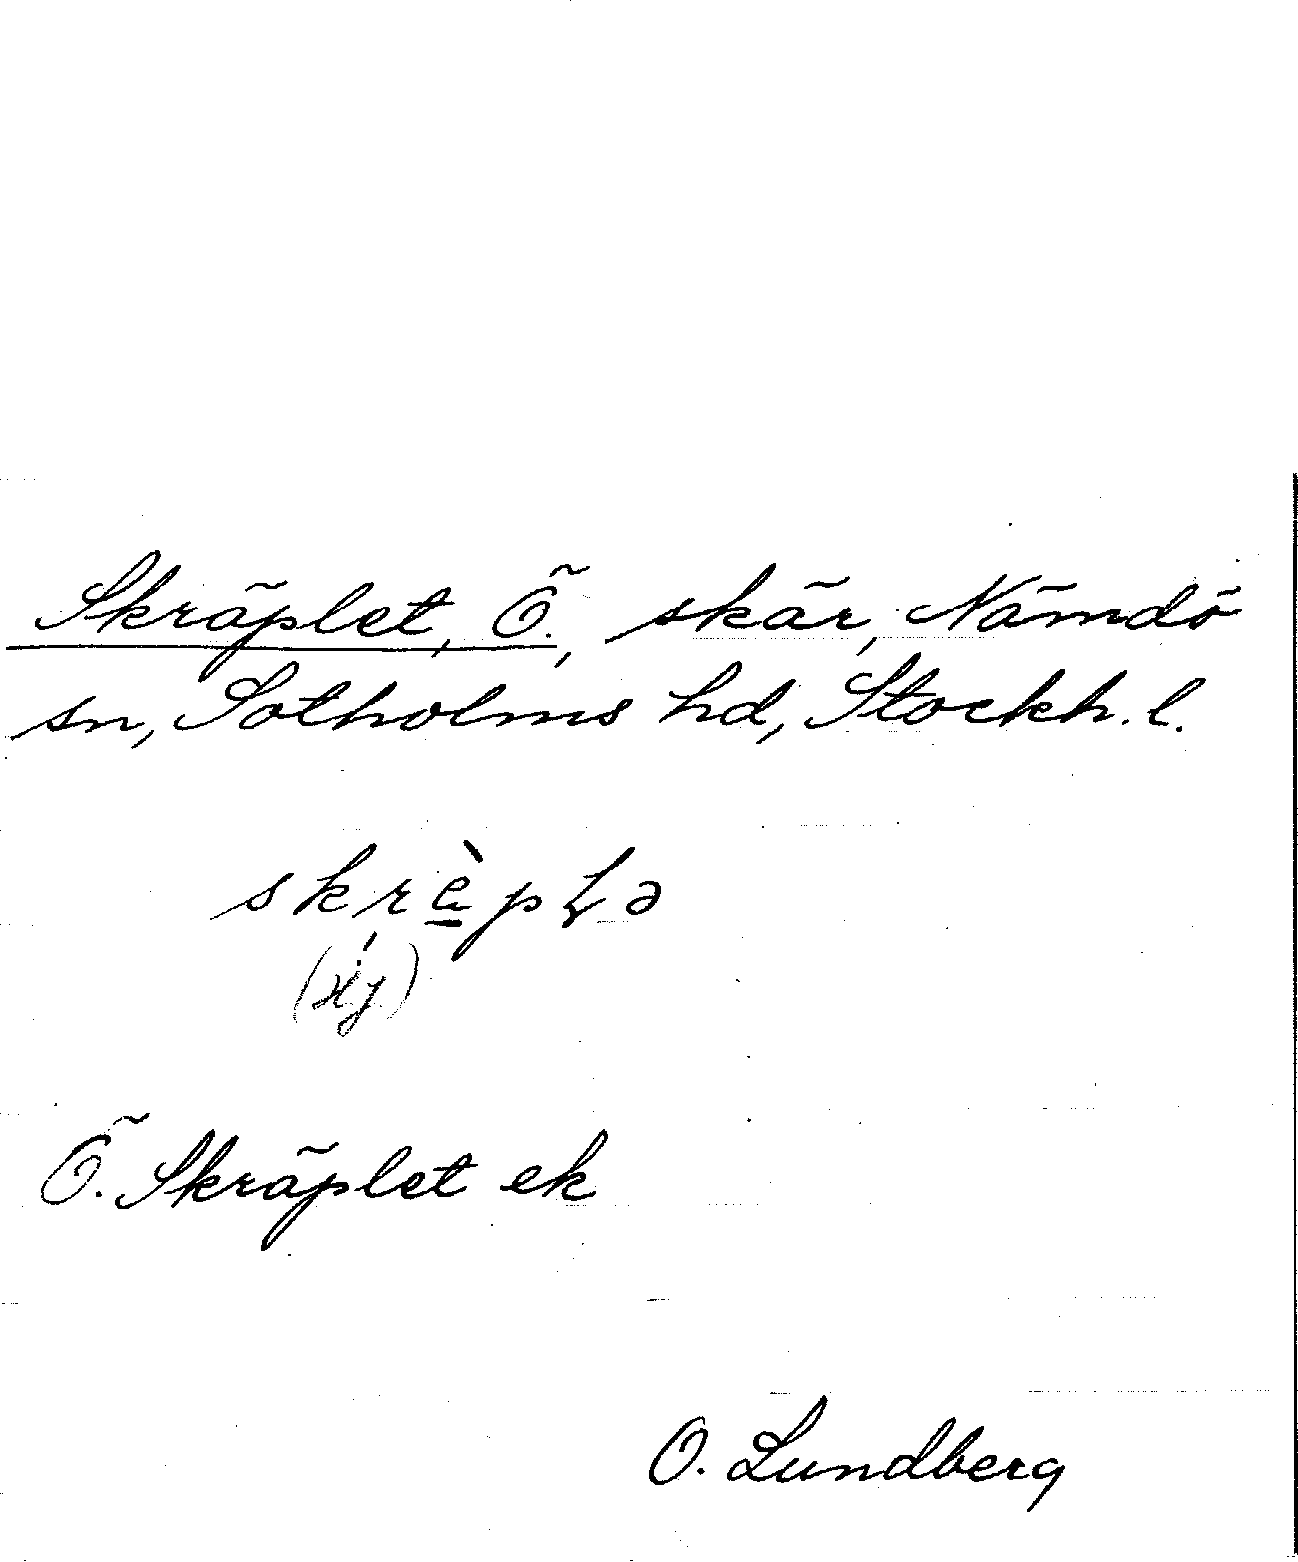 Skräplet, Ö., skär, Nämdö
sn, Sotholms hd, Stockh. l.
skrèpLə
Ö. Skräplet ek
O. Lundberg